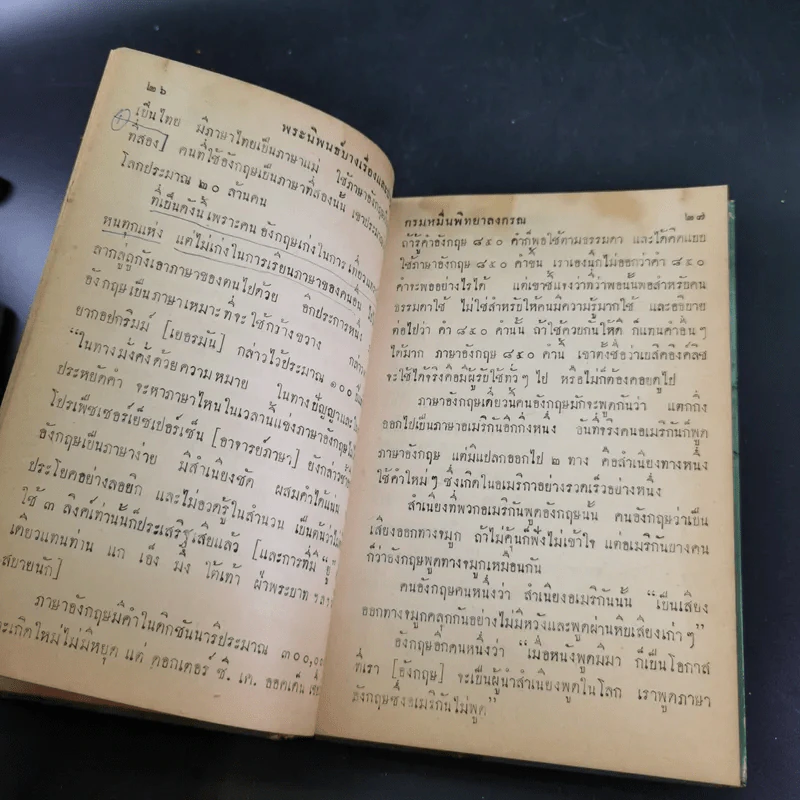 ๒๖
พระนิพนธ์บางเรื่องและ
เป็นไทย มีภาษาไทยเป็นภาษาแม่ ใช้ภาษาอังกฤษ
ที่สอง] คนที่ใช้อังกฤษเป็นภาษาที่สองนั้น เขาประมาณ
โลกประมาณ ๒๐ ล้านคน
ที่เป็นดังนี้เพราะคนอังกฤษเก่งในการ
หนทุกแห่ง แต่ไม่เก่งในการเรียนภาษาของคนอื่น
ลากลู่ถูกังเอาภาษาของตนไปด้วย อีกประการหนึ่ง
อังกฤษเป็นภาษาเหมาะที่จะใช้กว้างขวาง
ยากอปกริมม์ [เยอรมัน] กล่าวไว้ประมาณ ๑๐๐
"ในทางมั่งคั่งด้วยความหมาย ในทางปัญญาและ
ประหยัดคำ จะหาภาษาไหนในเวลานี้แข่งภาษาอังกฤษ
โปรเฟ็ซเซอร์เย็ซเปอร์เซ็น [อาจารย์ภาษา] ยังกล่าว
อังกฤษเป็นภาษาง่าย มีสำเนียงชัด ผสมคำได้แน่น
ประโยคอย่างลออยิก และไม่อวดรู้ในสำนวน เป็นต้นว่า
ใช้ ๓ ลิงค์เท่านั้นก็ประเสริฐเสียแล้ว [และการที่มี "ยู"
เดียวแทนท่าน แก เอ็ง มึง ใต้เท้า ฝ่าพระบาท ฯลฯ
สบายนัก]
ภาษาอังกฤษมีคำในดิกชันนารีประมาณ ๓๐๐,๐๐
และเกิดใหม่ไม่มีหยุด แต่ ดอกเตอร์ ซี. เค. ออคเด็น
กรมหมื่นพิทยาลงกรณ
๒๗
ถ้ารู้คำอังกฤษ ๘๕๐ คำก็พอใช้ตามธรรมดา และได้คิดแยย
ใช้ภาษาอังกฤษ ๘๕๐ คำขึ้น เราเองนึกไม่ออกว่าคำ ๘๕๐
คำจะพออย่างไรได้ แต่เขาชี้แจงว่าที่ว่าพอนั้นพอสำหรับคน
ธรรมดาใช้ ไม่ใช่สำหรับให้คนมีความรู้มากใช้ และอธิบาย
ต่อไปว่า คำ ๘๕๐ คำนั้น ถ้าใช้ควยกันให้ดี ก็แทนคำอื่นๆ
ได้มาก ภาษาอังกฤษ ๘๕๐ คำนี้ เขาตั้งชื่อว่าเบสิคอิงคลิช
จะใช้ได้จริงคือมีผู้รับใช้ทั่วๆ ไป หรือไม่ก็ต้องคอยดูไป
ภาษาอังกฤษเดี๋ยวนี้คนอังกฤษมักจะพูดกันว่า แตกกิ่ง
ออกไปเป็นภาษาอเมริกันอีกกิ่งหนึ่ง อันที่จริงคนอเมริกันก็พูด
ภาษาอังกฤษ แต่มีแปลกออกไป ๒ ทาง คือสำเนียงทางหนึ่ง
ใช้คำใหม่ๆ ซึ่งเกิดในอเมริกาอย่างรวดเร็วอย่างหนึ่ง
สำเนียงที่พวกอเมริกันพูดอังกฤษนั้น คนอังกฤษว่าเป็น
เสียงออกทางจมูก ถ้าไม่คุ้นก็ฟังไม่เข้าใจ แต่อเมริกันบางคน
ก็ว่าอังกฤษพูดทางจมูกเหมือนกัน
คนอังกฤษคนหนึ่งว่า สำเนียงอเมริกันนั้น "เป็นเสียง
ออกทางจมูกคลุกกันอย่างไม่มีหวังและพูดผ่านหีบเสียงเก่าๆ"
อังกฤษอีกคนหนึ่งว่า "เมื่อหนังพูดมีมา ก็เป็นโอกาส
ที่เรา [อังกฤษ] จะเป็นผู้นำสำเนียงพูดในโลก เราพูดภาษา
อังกฤษซึ่งอเมริกันไม่พูด"